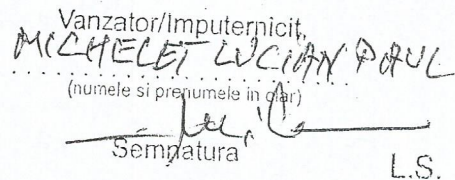 Vanzator/Imputernicit,
MICHELET LUCIAN PAUL
(numele si prenumele in clar)
Semnatura
L.S.